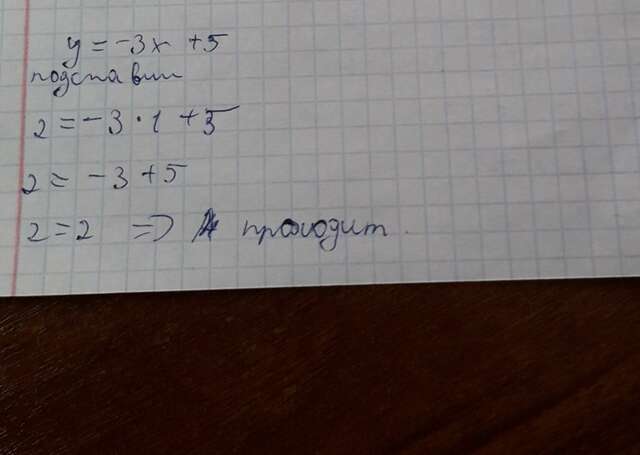 y = -3x + 5
подставим
2 = -3 · 1 + 5
2 = -3 + 5
2 = 2 => проходит.